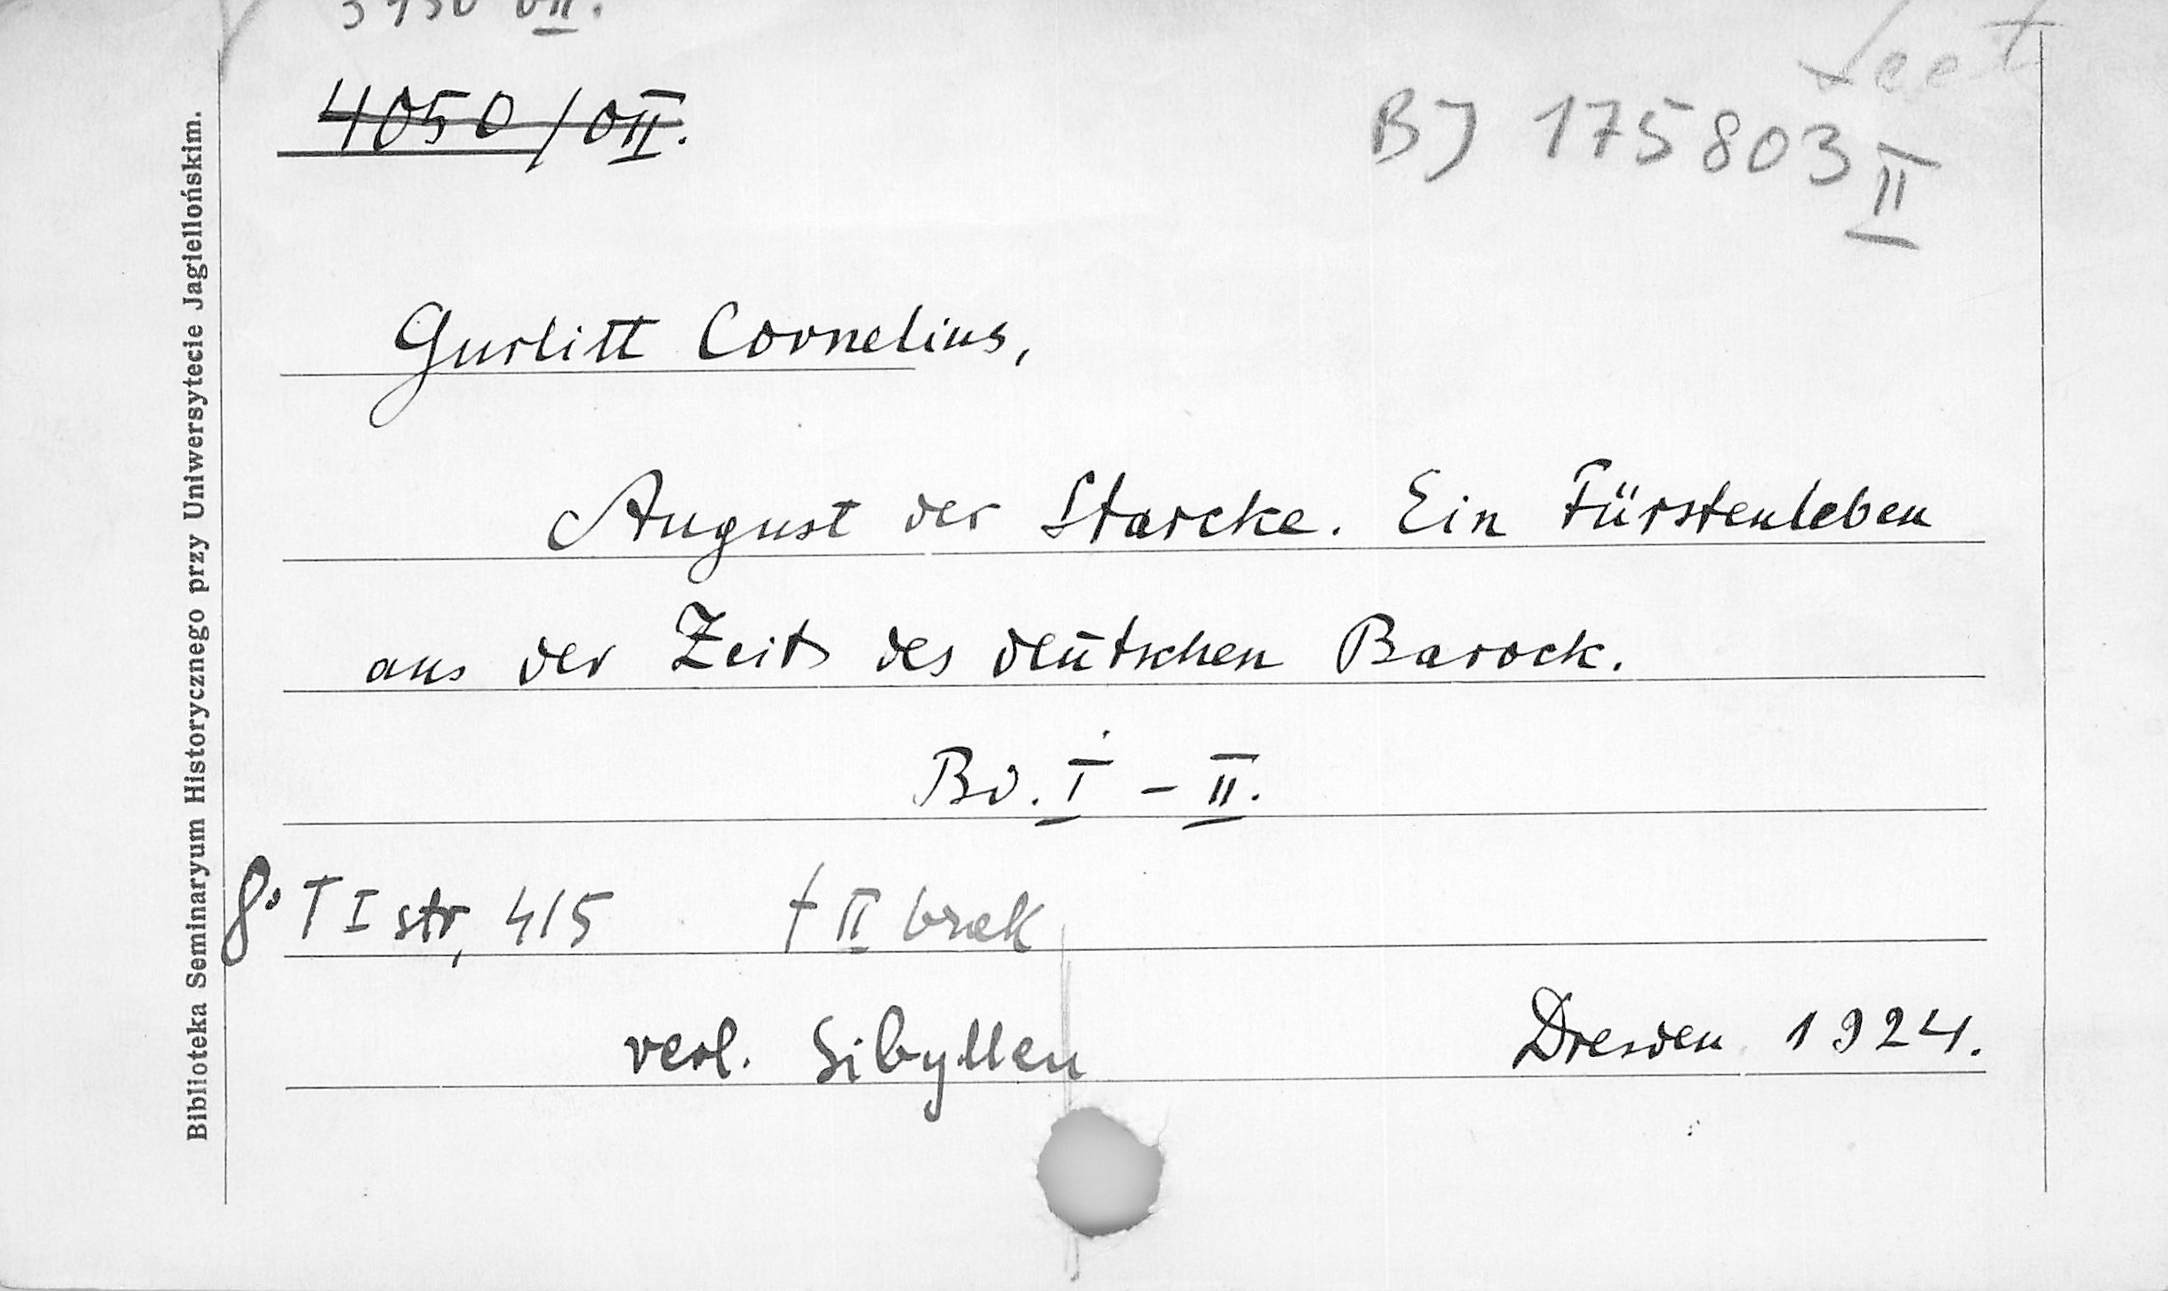 4050/OII.
BJ 175803 II
Gurlitt Cornelius,
August der Starcke. Ein Fürstenleben
aus der Zeit des deutschen Barock.
Bd. I - II.
8° T I str, 415 t II brak
verl. Sibyllen Dresden 1924.
Biblioteka Seminaryum Historycznego przy Uniwersytecie Jagiellońskim.